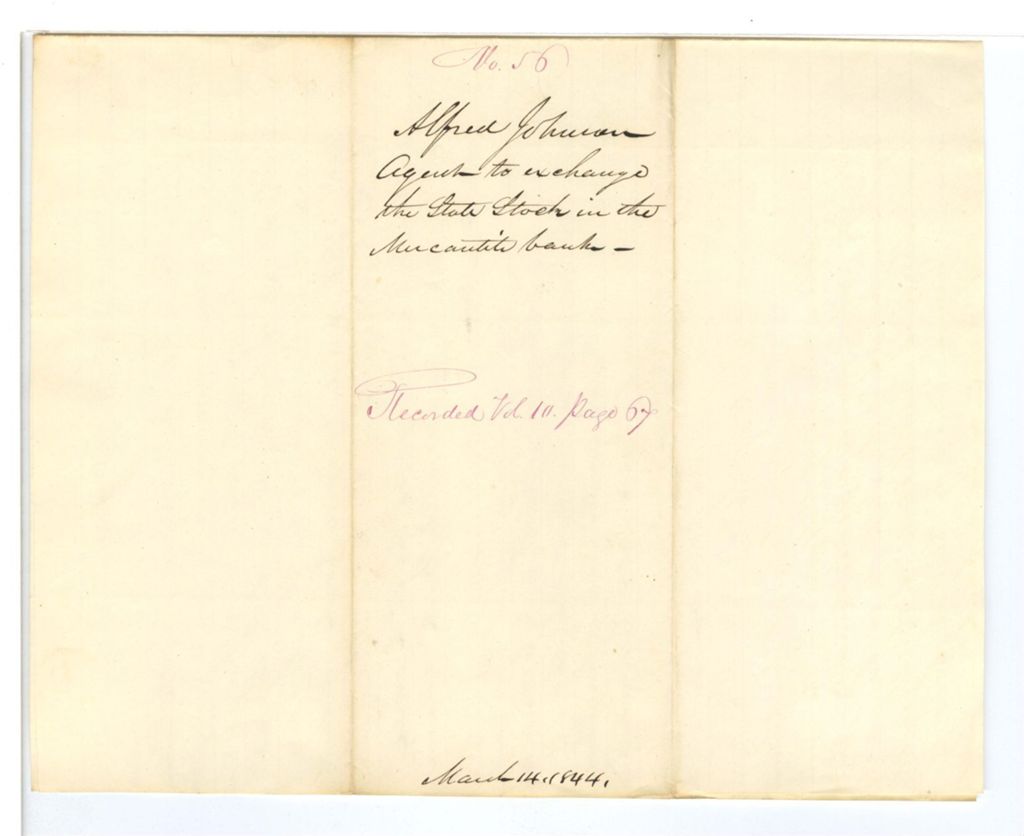 No. 56
Alfred Johnson
Agent to exchange
the State Stock in the
Mercantile bank –
Recorded Vol. 10. Page 67
March 14, 1844.